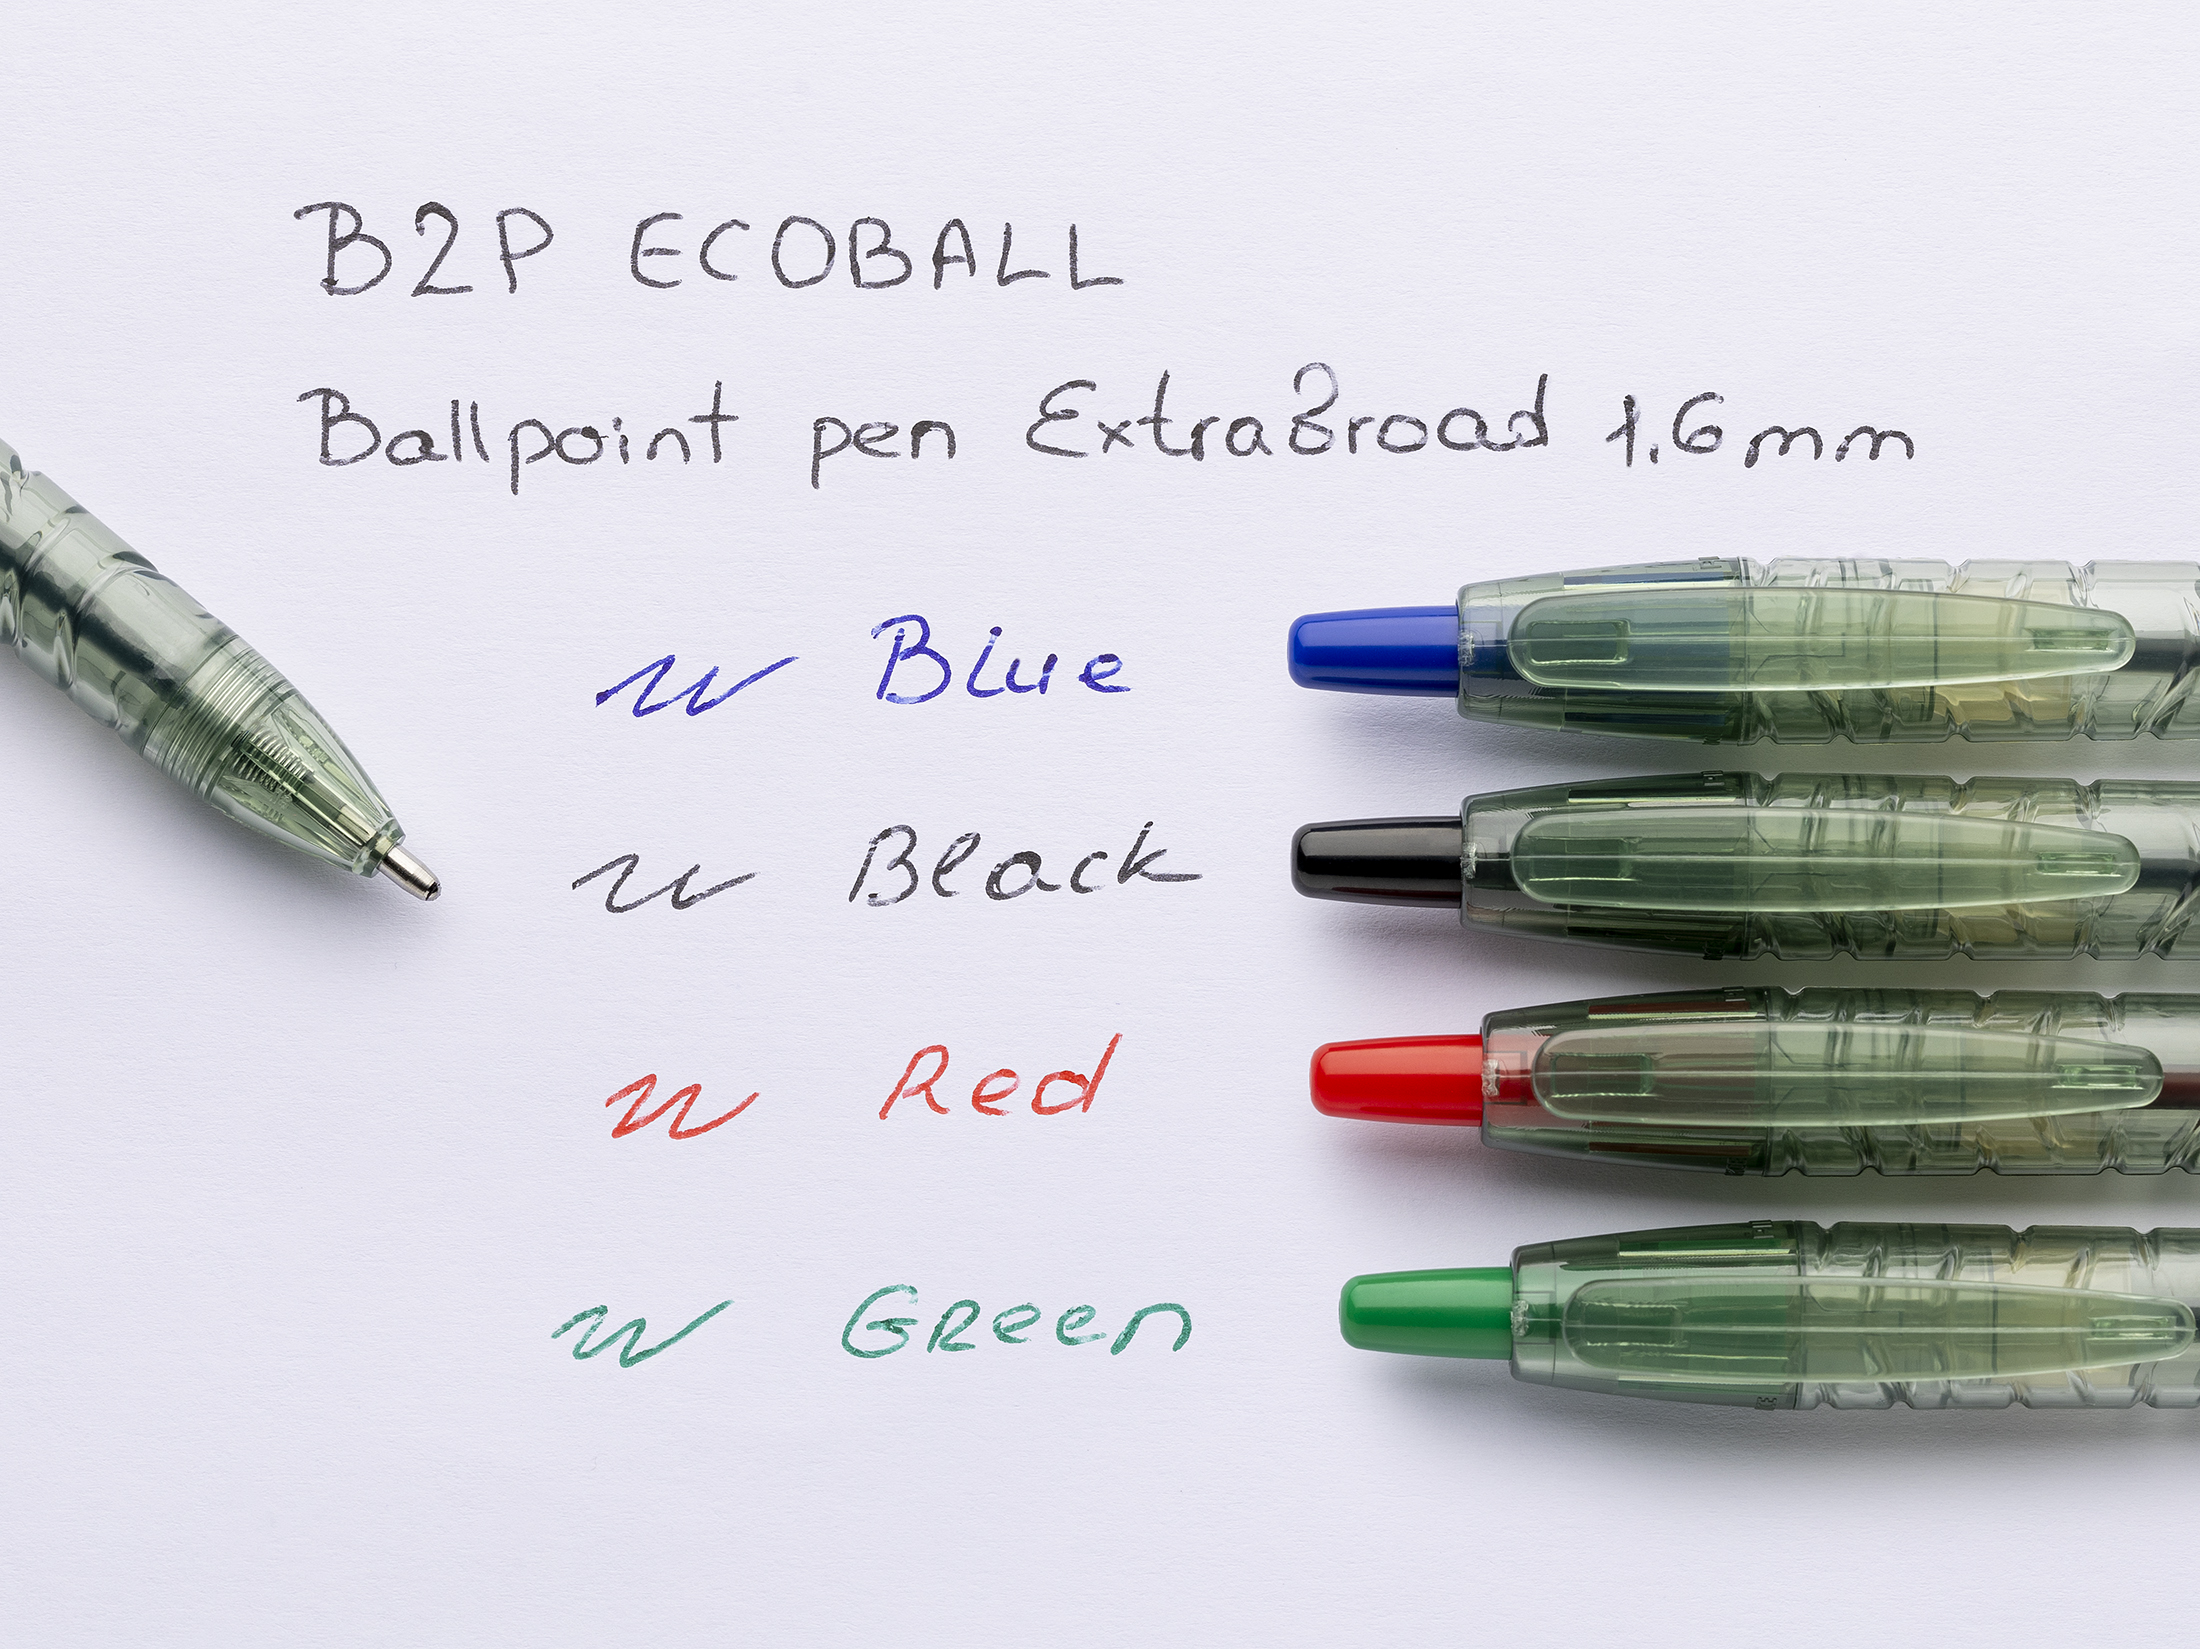 B2P ECOBALL
Ballpoint pen ExtraBroad 1.6mm
Blue
Black
Red
Green